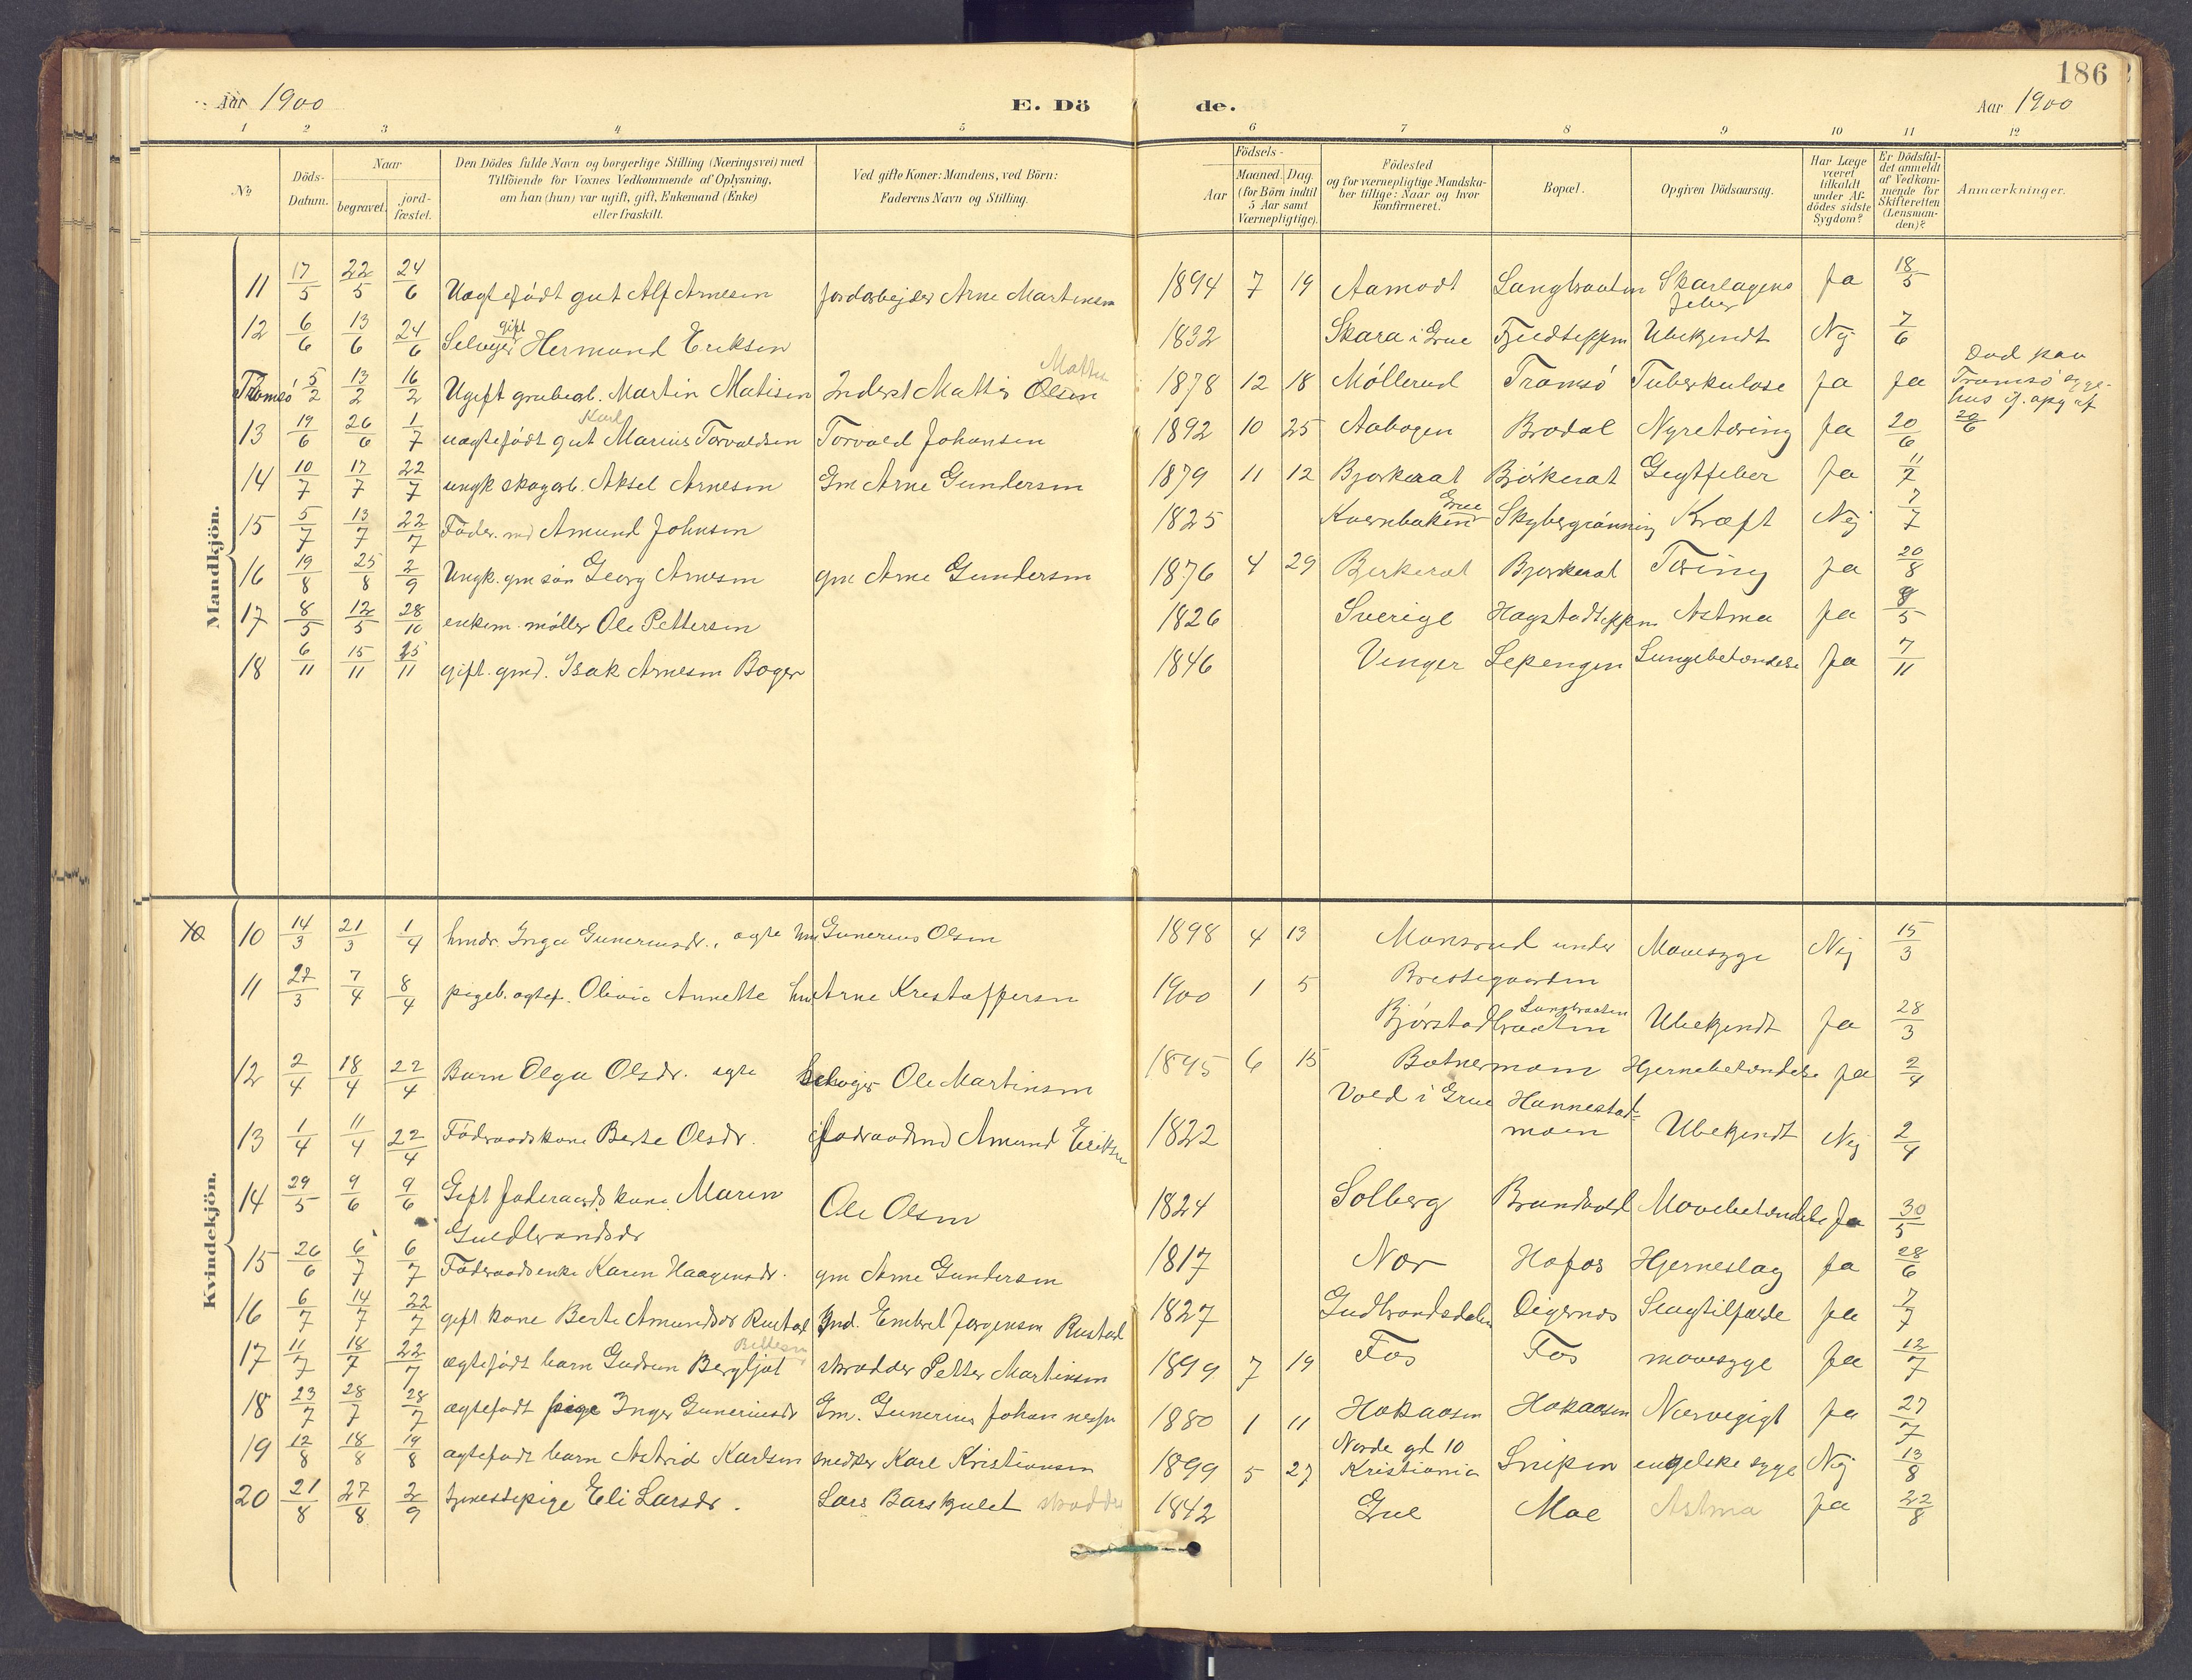 186
Aar 1900 E. Dö de. Aar 1900
1 2 3 4 5 6 7 8 9 10 11 12
No
Döds-Datum.
Naar
begravet.
jord-fæstet.
Den Dödes fulde Navn og borgerlige Stilling (Næringsvei) med
Tilföiende for Voxnes Vedkommende af Oplysning,
om han (hun) var ugift, gift, Enkemand (Enke)
eller fraskilt.
Ved gifte Koner: Mandens, ved Börn:
Faderens Navn og Stilling.
Födsels-
Aar
Maaned. Dag.
(for Börn indtil
5 Aar samt
Værnepligtige).
Födested
og for værnepligtige Mandska-
ber tillige: Naar og hvor
konfirmeret.
Bopæl.
Opgiven Dödsaarsag.
Har Læge
været
tilkaldt
under Af-
dödes sidste
Sygdom?
Er Dödsfal-
det anmeldt
af Vedkom-
mende for
Skifteretten
(Lensman-
den)?
Anmærkninger.
Mandkjön.
11 17/5 22/5 24/6 Uægtefødt gut Alf Arnesen Jordarbejder Arne Martinsen 1894 7 19 Aamodt Langbraaten Skarlagens feber Ja 18/5
12 6/6 13/6 24/6 Selvejer gift Hermund Eriksen 1832 Skara i Grue Fjeldseppen Ubekjendt Nej 7/6
Tromsö 5/2 13/2 16/2 Ugift grubearb. Martin Matisen Inderst Mattis Olsen Mattis 1878 12 18 Möllerud Tromsö Tuberkulose Ja Ja Død paa Tromsö syge-hus if. opg af 20/6
13 19/6 26/6 1/7 uægtefødt gut Karl Marius Torvaldsen Torvald Johansen 1892 10 25 Aabogen Brodal Nyretæring Ja 20/6
14 10/7 17/7 22/7 ungk skogarb. Aksel Arnesen Gm Arne Gundersen 1879 11 12 Bjørkerat Björkerat Gigtfeber Ja 11/7
15 5/7 13/7 22/7 Föder. md Amund Johnsen 1825 Kvernbakken Grue Skybergrönning Kræft Nej 7/7
16 19/8 25/8 2/9 Ungk. gm sön Georg Arnesen gm Arne Gundersen 1876 4 29 Berkerat Bjerkerat Tæring Ja 20/8
17 8/5 12/5 28/10 enkem. möller Ole Pettersen 1826 Sverige Hagstadseppen Astma Ja 8/5
18 6/11 15/11 25/11 gift. gmd. Isak Arnesen Boger 1846 Vinger Lepengen Lungebetændelse Ja 7/11
Kvindekjön.
10 14/3 21/3 1/4 hmdr. Inga Guneriusdr., ægte hm Gunerius Olsen 1898 4 13 Monsrud under Brestegaarden Mavesyge Nej 15/3
11 27/3 7/4 8/4 pigeb. ægtef. Olivie Annette hm Arne Kristoffersen 1900 1 5 Björstadbraaten Langbraaten Ubekjendt Ja 28/3
12 2/4 18/4 22/4 Barn Olga Olsdr. ægte Selvejer Ole Martinsen 1895 6 15 Botnermoen Hjernebetændelse Ja 2/4
13 1/4 11/4 22/4 Föderaadskone Berte Olsdr. föderaadmd Amund Eriksen 1822 Vold i Grue Hannestad-moen Ubekjendt Nej 2/4
14 29/5 9/6 9/6 Gift foderaadskone. Maren Guldbrandsdr Ole Olsen 1824 Solberg Brandvold Mavebetændelse Ja 30/5
15 26/6 6/7 6/7 Föderaadsenke Karen Haagensdr. gm Arne Gundersen 1817 Nor Hofos Hjerneslag Ja 28/6
16 6/7 14/7 22/7 gift kone Berte Amundsdr Rustad Ind. Embret Jørgensen Rustad 1827 Gudbrandsdalen Digernes Slagtilfælde Ja 7/7
17 11/7 18/7 22/7 ægtefødt barn Gudrun Bergljot skrædder Petter Martinsen 1899 7 19 Fos Fos mavesyge Ja 12/7
18 23/7 28/7 28/7 ægtefødt pige Inger Guneriusdr Gm. Gunerius Johannesen 1880 1 11 Hokaasen Hokaasen Nervegigt Ja 27/7
19 12/8 18/8 19/8 ægtefødt barn Astrid Karlsen snedker Karl Kristiansen 1899 5 27 Norde gd 10 Kristiania Snipen engelske syge Nej 13/8
20 21/8 27/8 2/9 tjenestepige Eli Larsdr. Lars Barskjulet skrædder 1842 Grue Moe Astma Ja 22/8